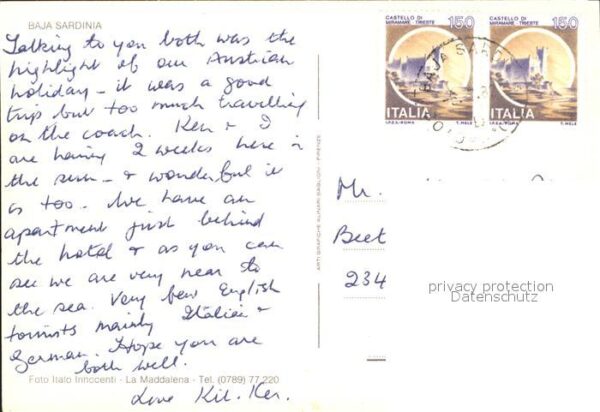 BAJA SARDINIA
Talking to you both was the
highlight of our Austrian
holiday - it was a good
trip but too much travelling
on the coach. Ken & I
are having 2 weeks here in
the sun - & wonderful it
is too. We have an
apartment just behind
the hotel & as you can
see we are very near to
the sea. Very few English
tourists mainly Italian &
German. Hope you are
both well.
Love Kit. Ken.
Foto Italo Innocenti - La Maddalena - Tel. (0789) 77.220
ARTI GRAFICHE ALINARI BAGLIONI - FIRENZE
CASTELLO DI MIRAMARE TRIESTE 150
ITALIA
I.P.Z.S.-ROMA T. MELE
CASTELLO DI MIRAMARE TRIESTE 150
ITALIA
I.P.Z.S.-ROMA T. MELE
BAJA SARD
Mr.
Beet
234
privacy protection
Datenschutz